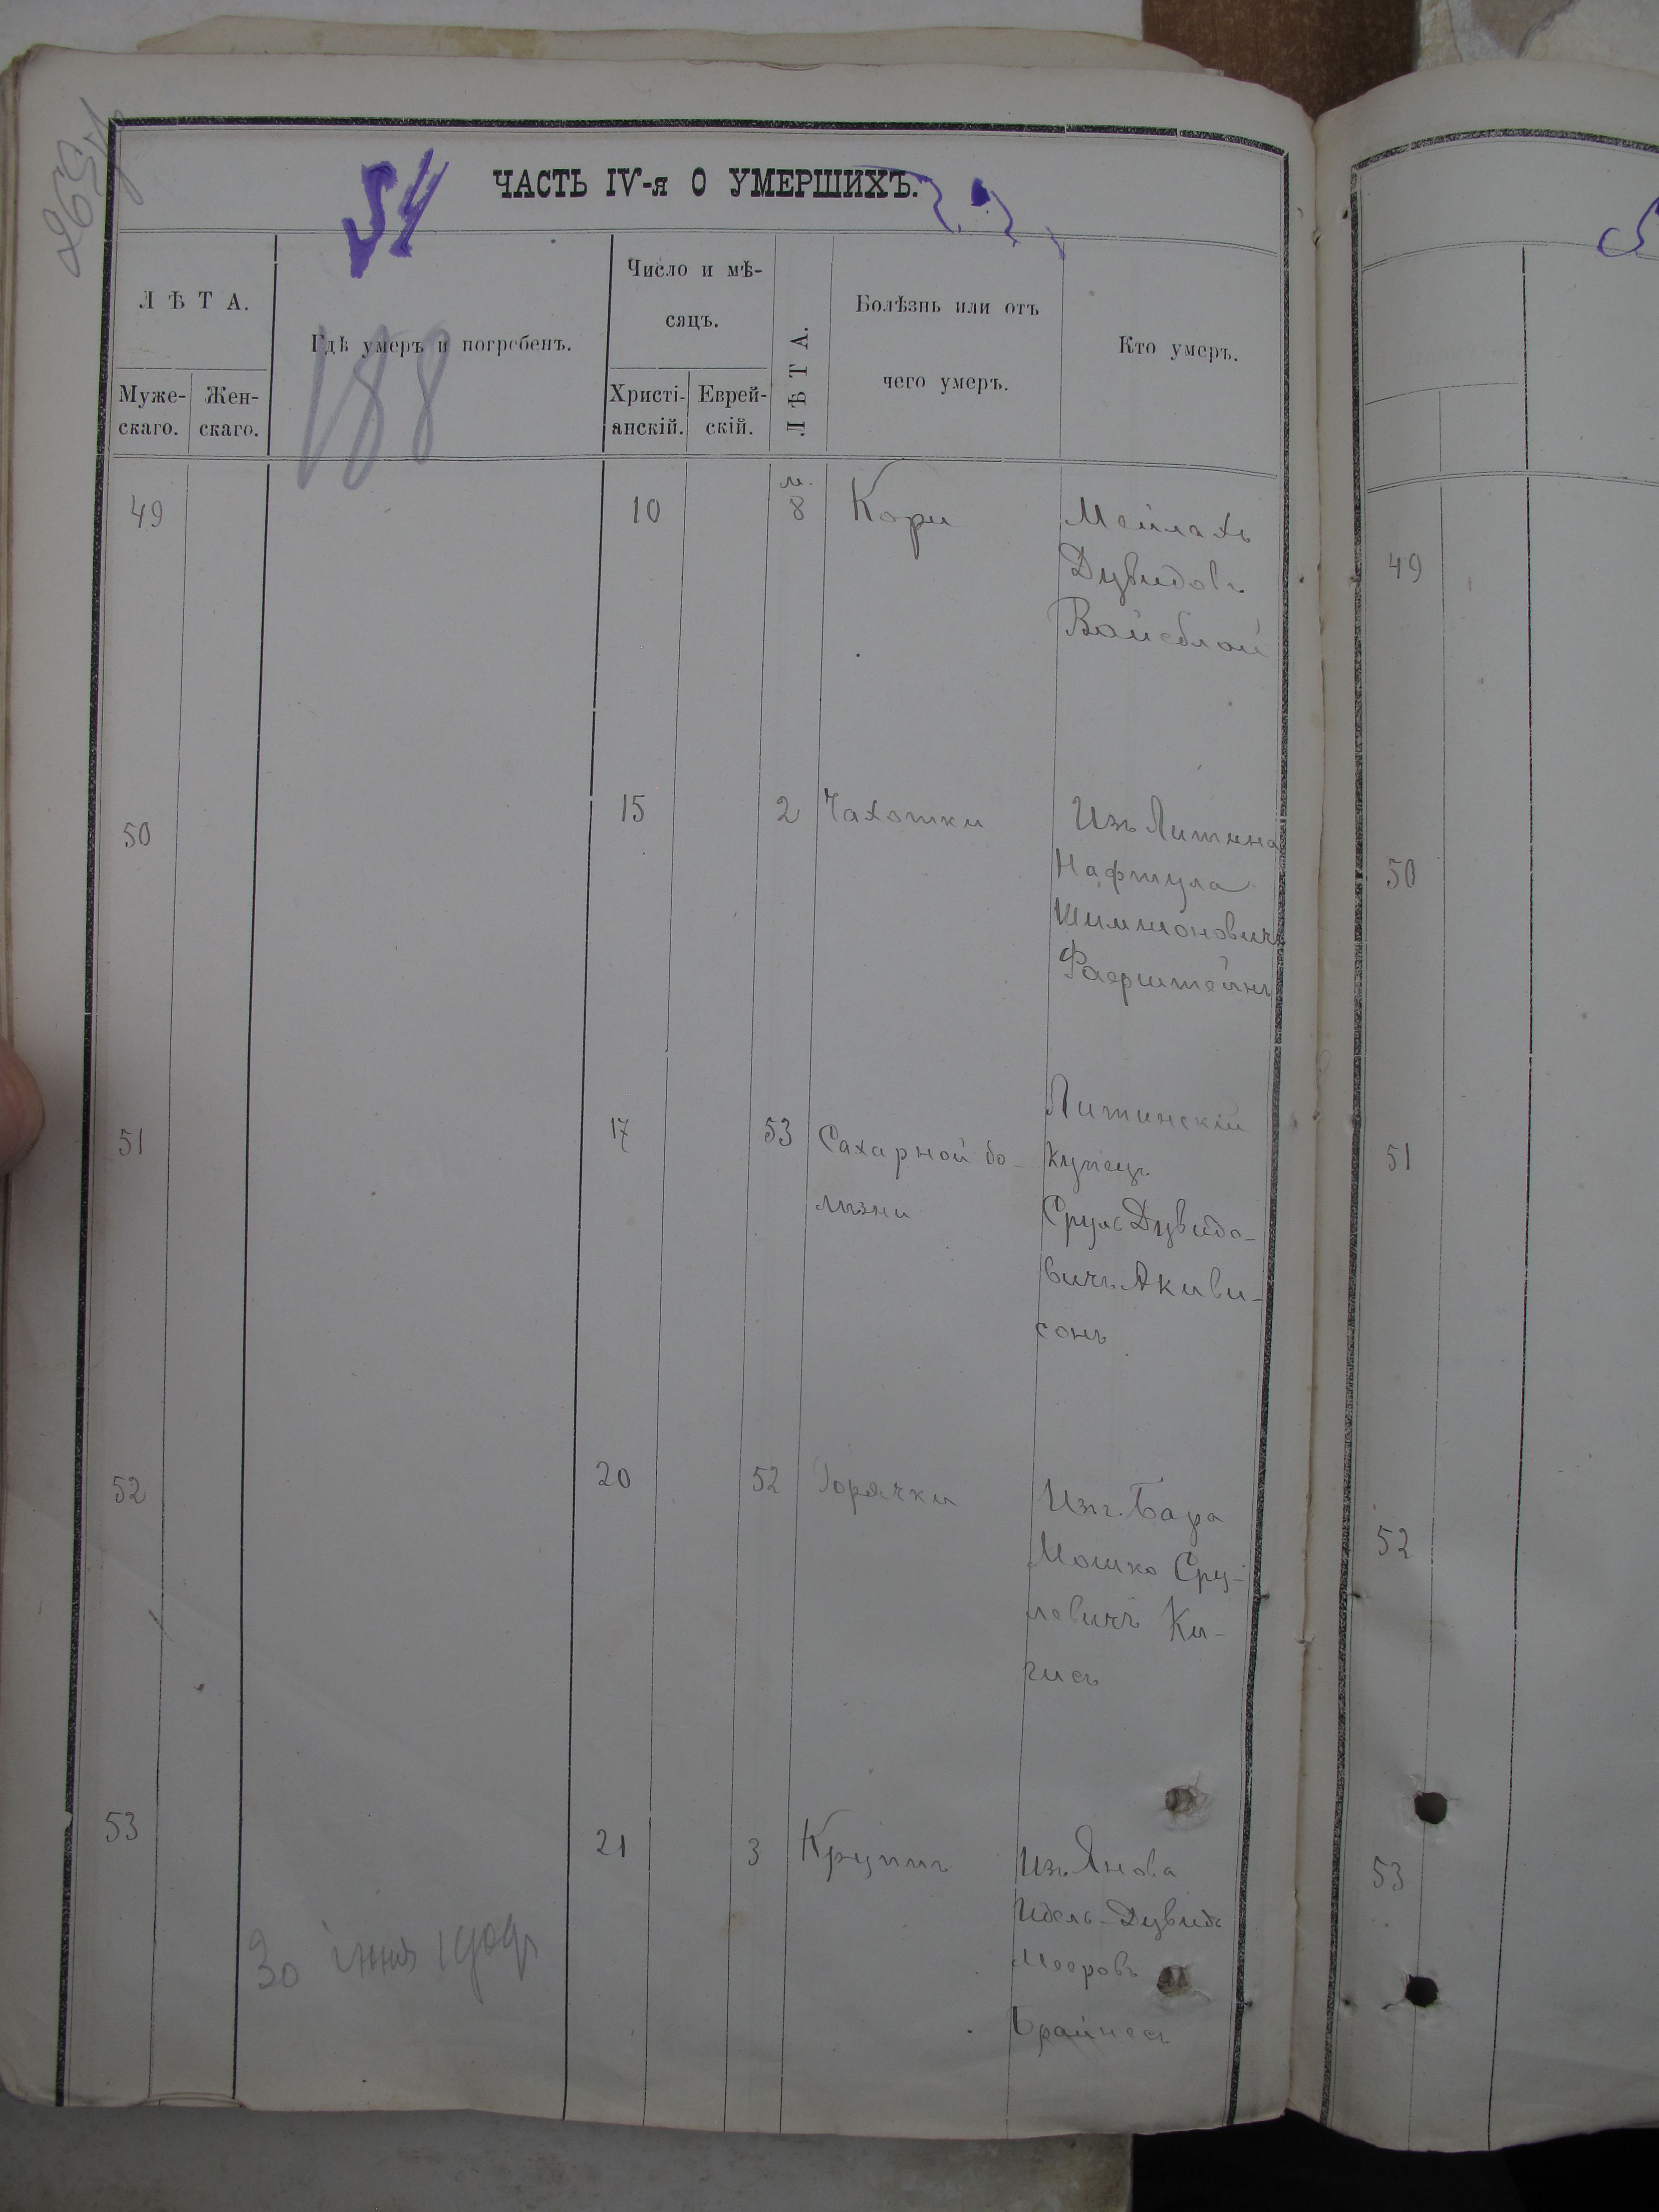 ЧАСТЬ IV-я О УМЕРШИХЪ.
54
188
ЛѢТА.
Муже-
скаго.
Жен-
скаго.
Гдѣ умеръ и погребенъ.
Число и мѣ-
сяцъ.
Христі-
анскій.
Еврей-
скій.
ЛѢТА.
Болѣзнь или отъ
чего умеръ.
Кто умеръ.
49
10
м.
8
Кори
Мейлахъ
Дувидовъ
Вайсблай
50
15
2
Чахотки
Изъ Литина
Нафтула
Шимшоновичъ
Фаерштейнъ
51
17
53
Сахарной бо-
лѣзни
Литинскій
купецъ
Сруль Дувидо-
вичъ Акиви-
сонъ
52
20
52
Горячки
Изъ Бара
Мошко Сру-
левичъ Ки-
гисъ
53
21
3
Крупъ
Изъ Янова
Идель-Дувидъ
Мееровъ
Брайнесъ
30
49
50
51
52
53